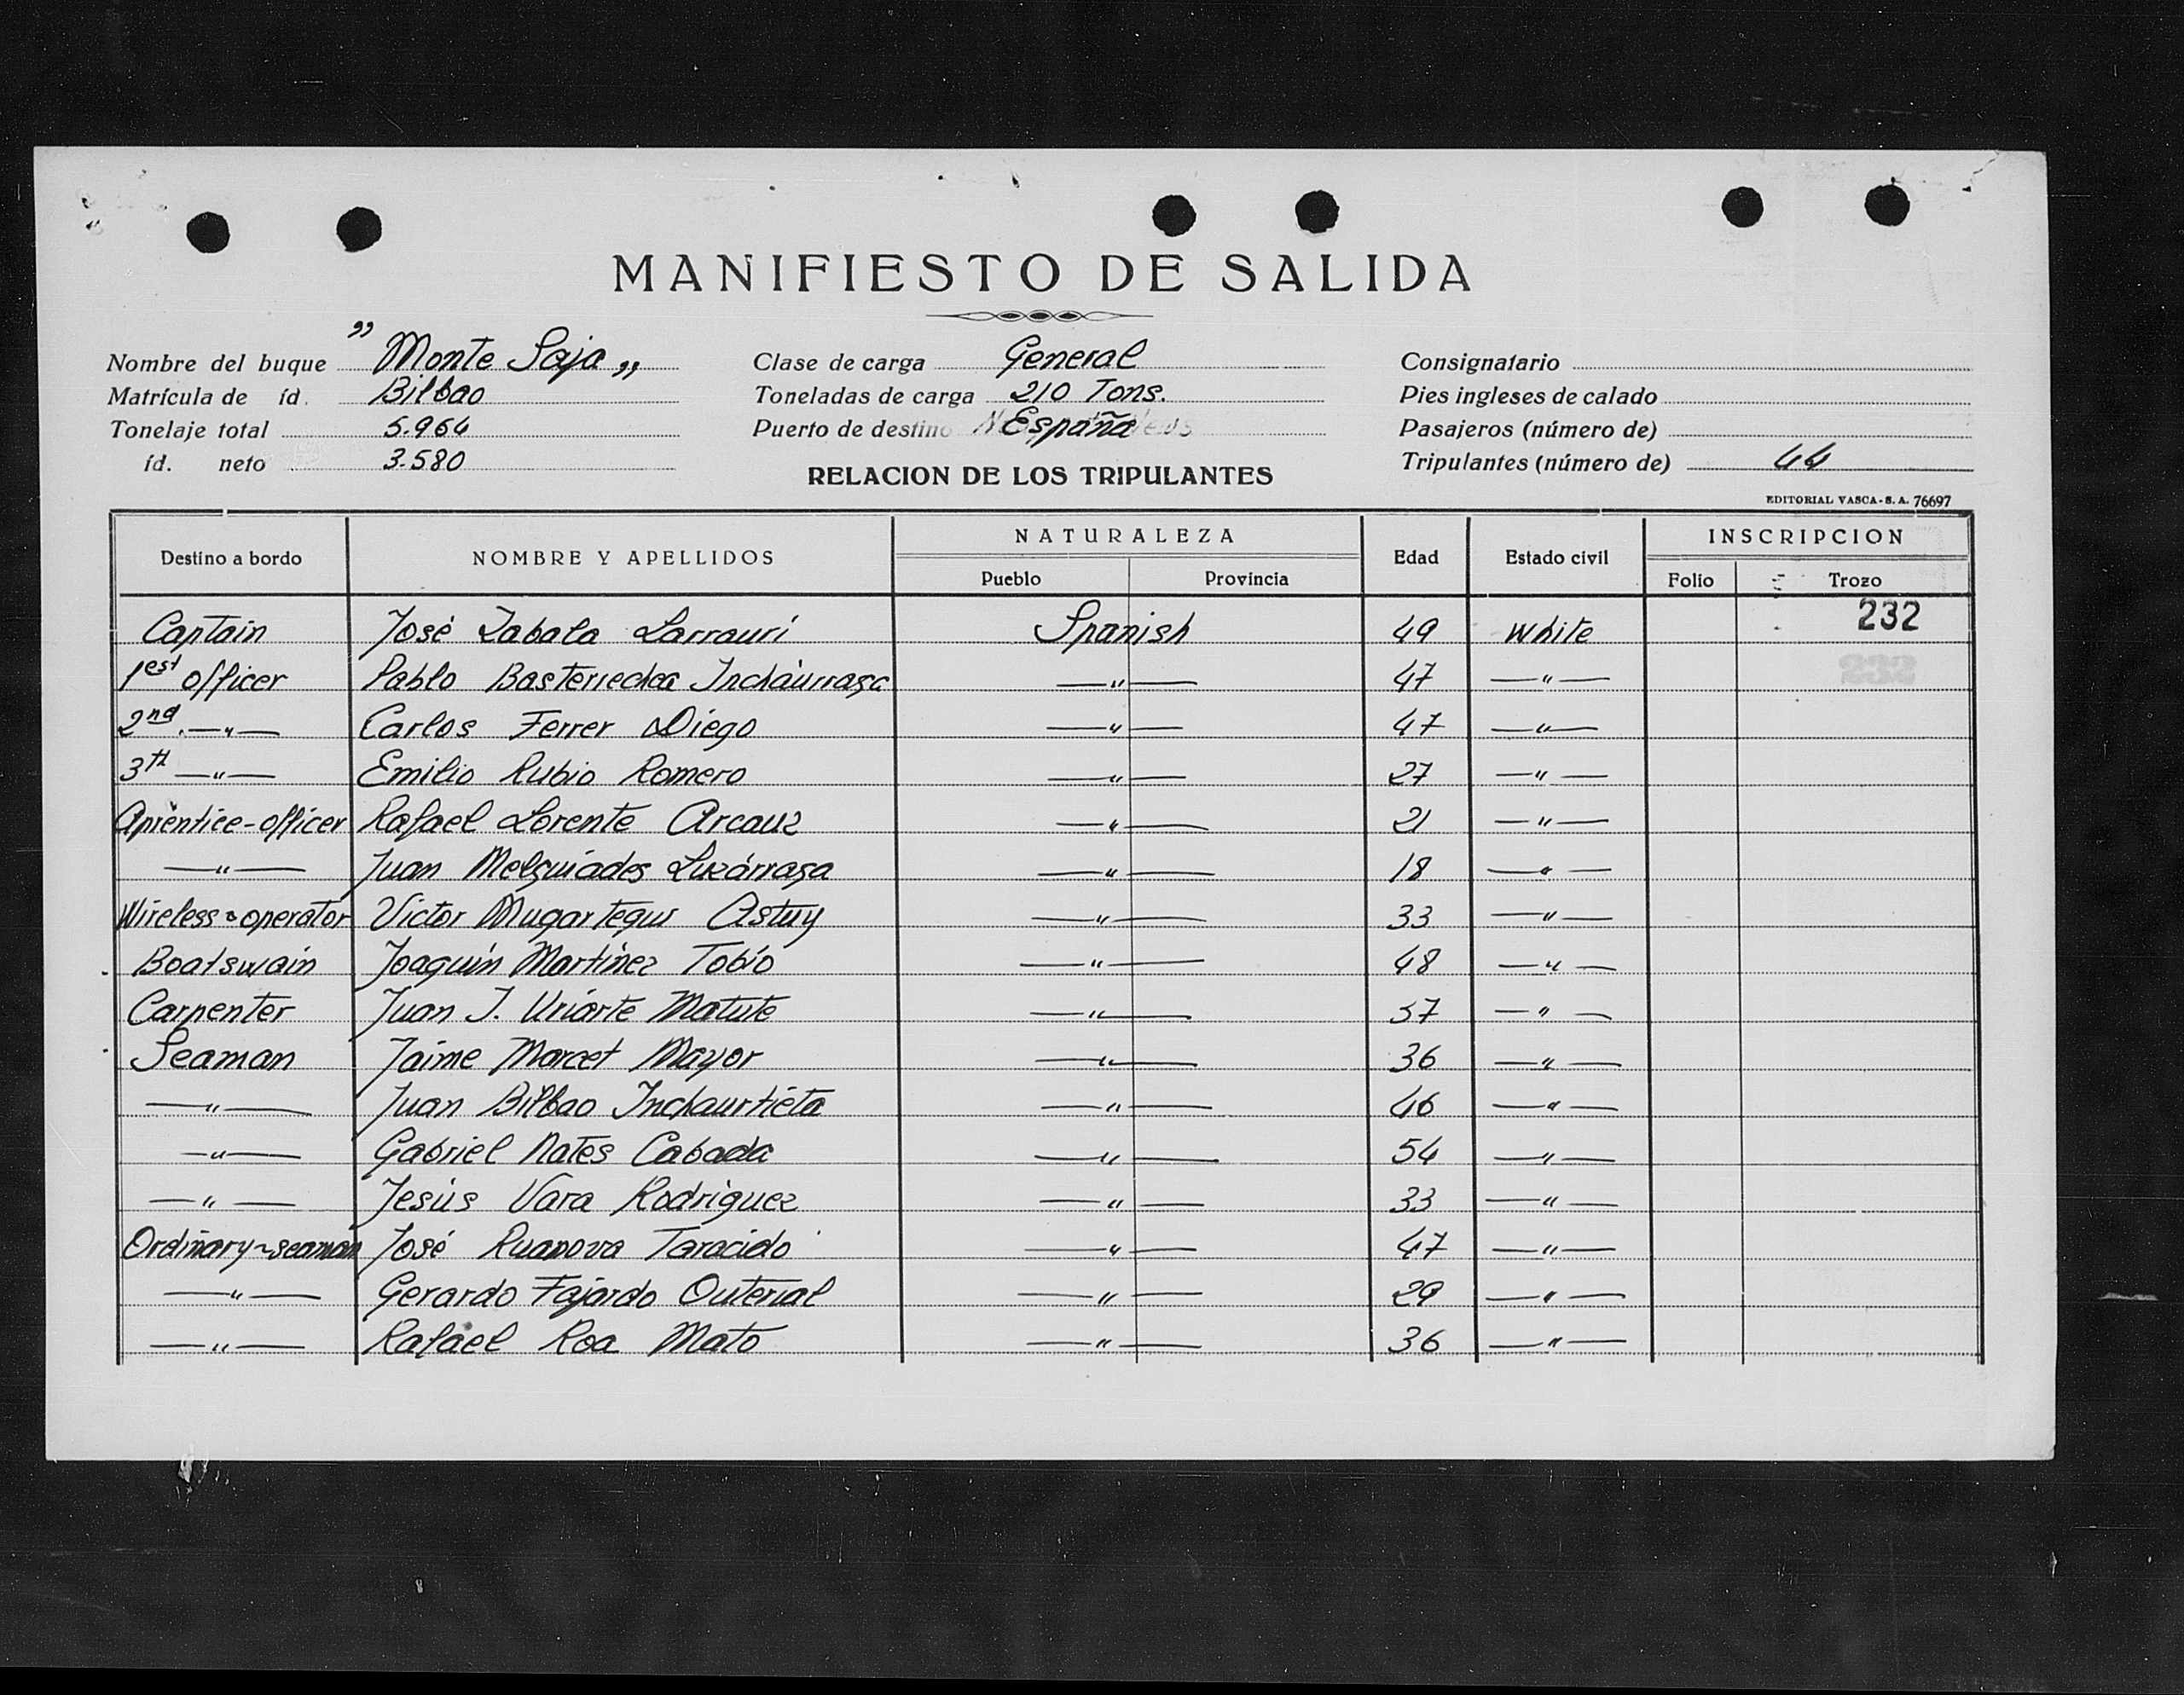 MANIFIESTO DE SALIDA
Nombre del buque „ Monte Saja „ Clase de carga General Consignatario
Matrícula de íd. Bilbao Toneladas de carga 210 Tons. Pies ingleses de calado
Tonelaje total 5.964 Puerto de destino España Pasajeros (número de)
íd. neto 3.580 Tripulantes (número de) 44
RELACION DE LOS TRIPULANTES
EDITORIAL VASCA-S.A. 76697
Destino a bordo NOMBRE Y APELLIDOS NATURALEZA Edad Estado civil INSCRIPCION
Pueblo Provincia Folio Trozo
232
Captain José Zabala Larrauri Spanish 49 white
232
1est officer Pablo BasterrecheaIncháurraga —"— 47 —"—
2nd —"— Carlos Ferrer Diego —"— 47 —"—
3th —"— Emilio Rubio Romero —"— 27 —"—
Aprentice-officer Rafael Lorente Arcauz —"— 21 —"—
—"— Juan Melquiades Luzárraga —"— 18 —"—
Wireless-operator Victor Mugartegui Astuy —"— 33 —"—
Boatswain Joaquín Martínez Tobío —"— 48 —"—
Carpenter Juan J. Uriarte Matute —"— 37 —"—
Seaman Jaime Marcet Mayor —"— 36 —"—
—"— Juan Bilbao Inchaurtieta —"— 46 —"—
—"— Gabriel Nates Cabada —"— 54 —"—
—"— Jesús Vara Rodriguez —"— 33 —"—
Ordinary-seaman José Ruanova Taracido —"— 47 —"—
—"— Gerardo Fajardo Outerial —"— 29 —"—
—"— Rafael Roa Mato —"— 36 —"—